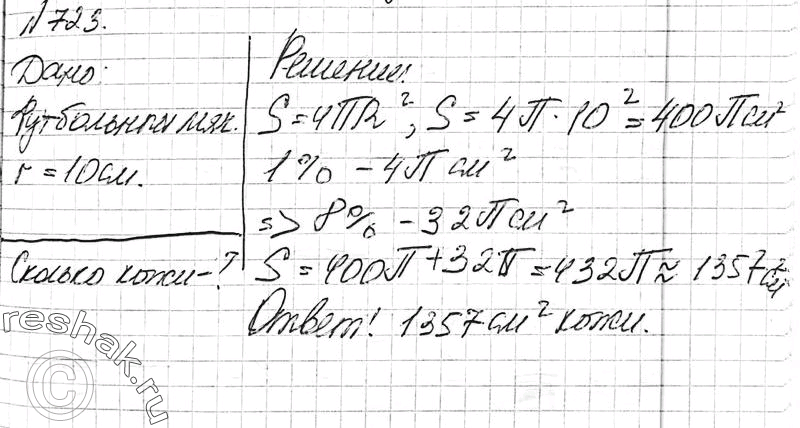 №723.
Дано:
Футбольный мяч.
r = 10 см.
Сколько кожи-?
Решение:
S = 4ПR², S = 4П · 10² = 400П см²
1% - 4П см²
=> 8% - 32П см²
S = 400П + 32П = 432П ≈ 1357 см²
Ответ: 1357 см² кожи.
© reshak.ru